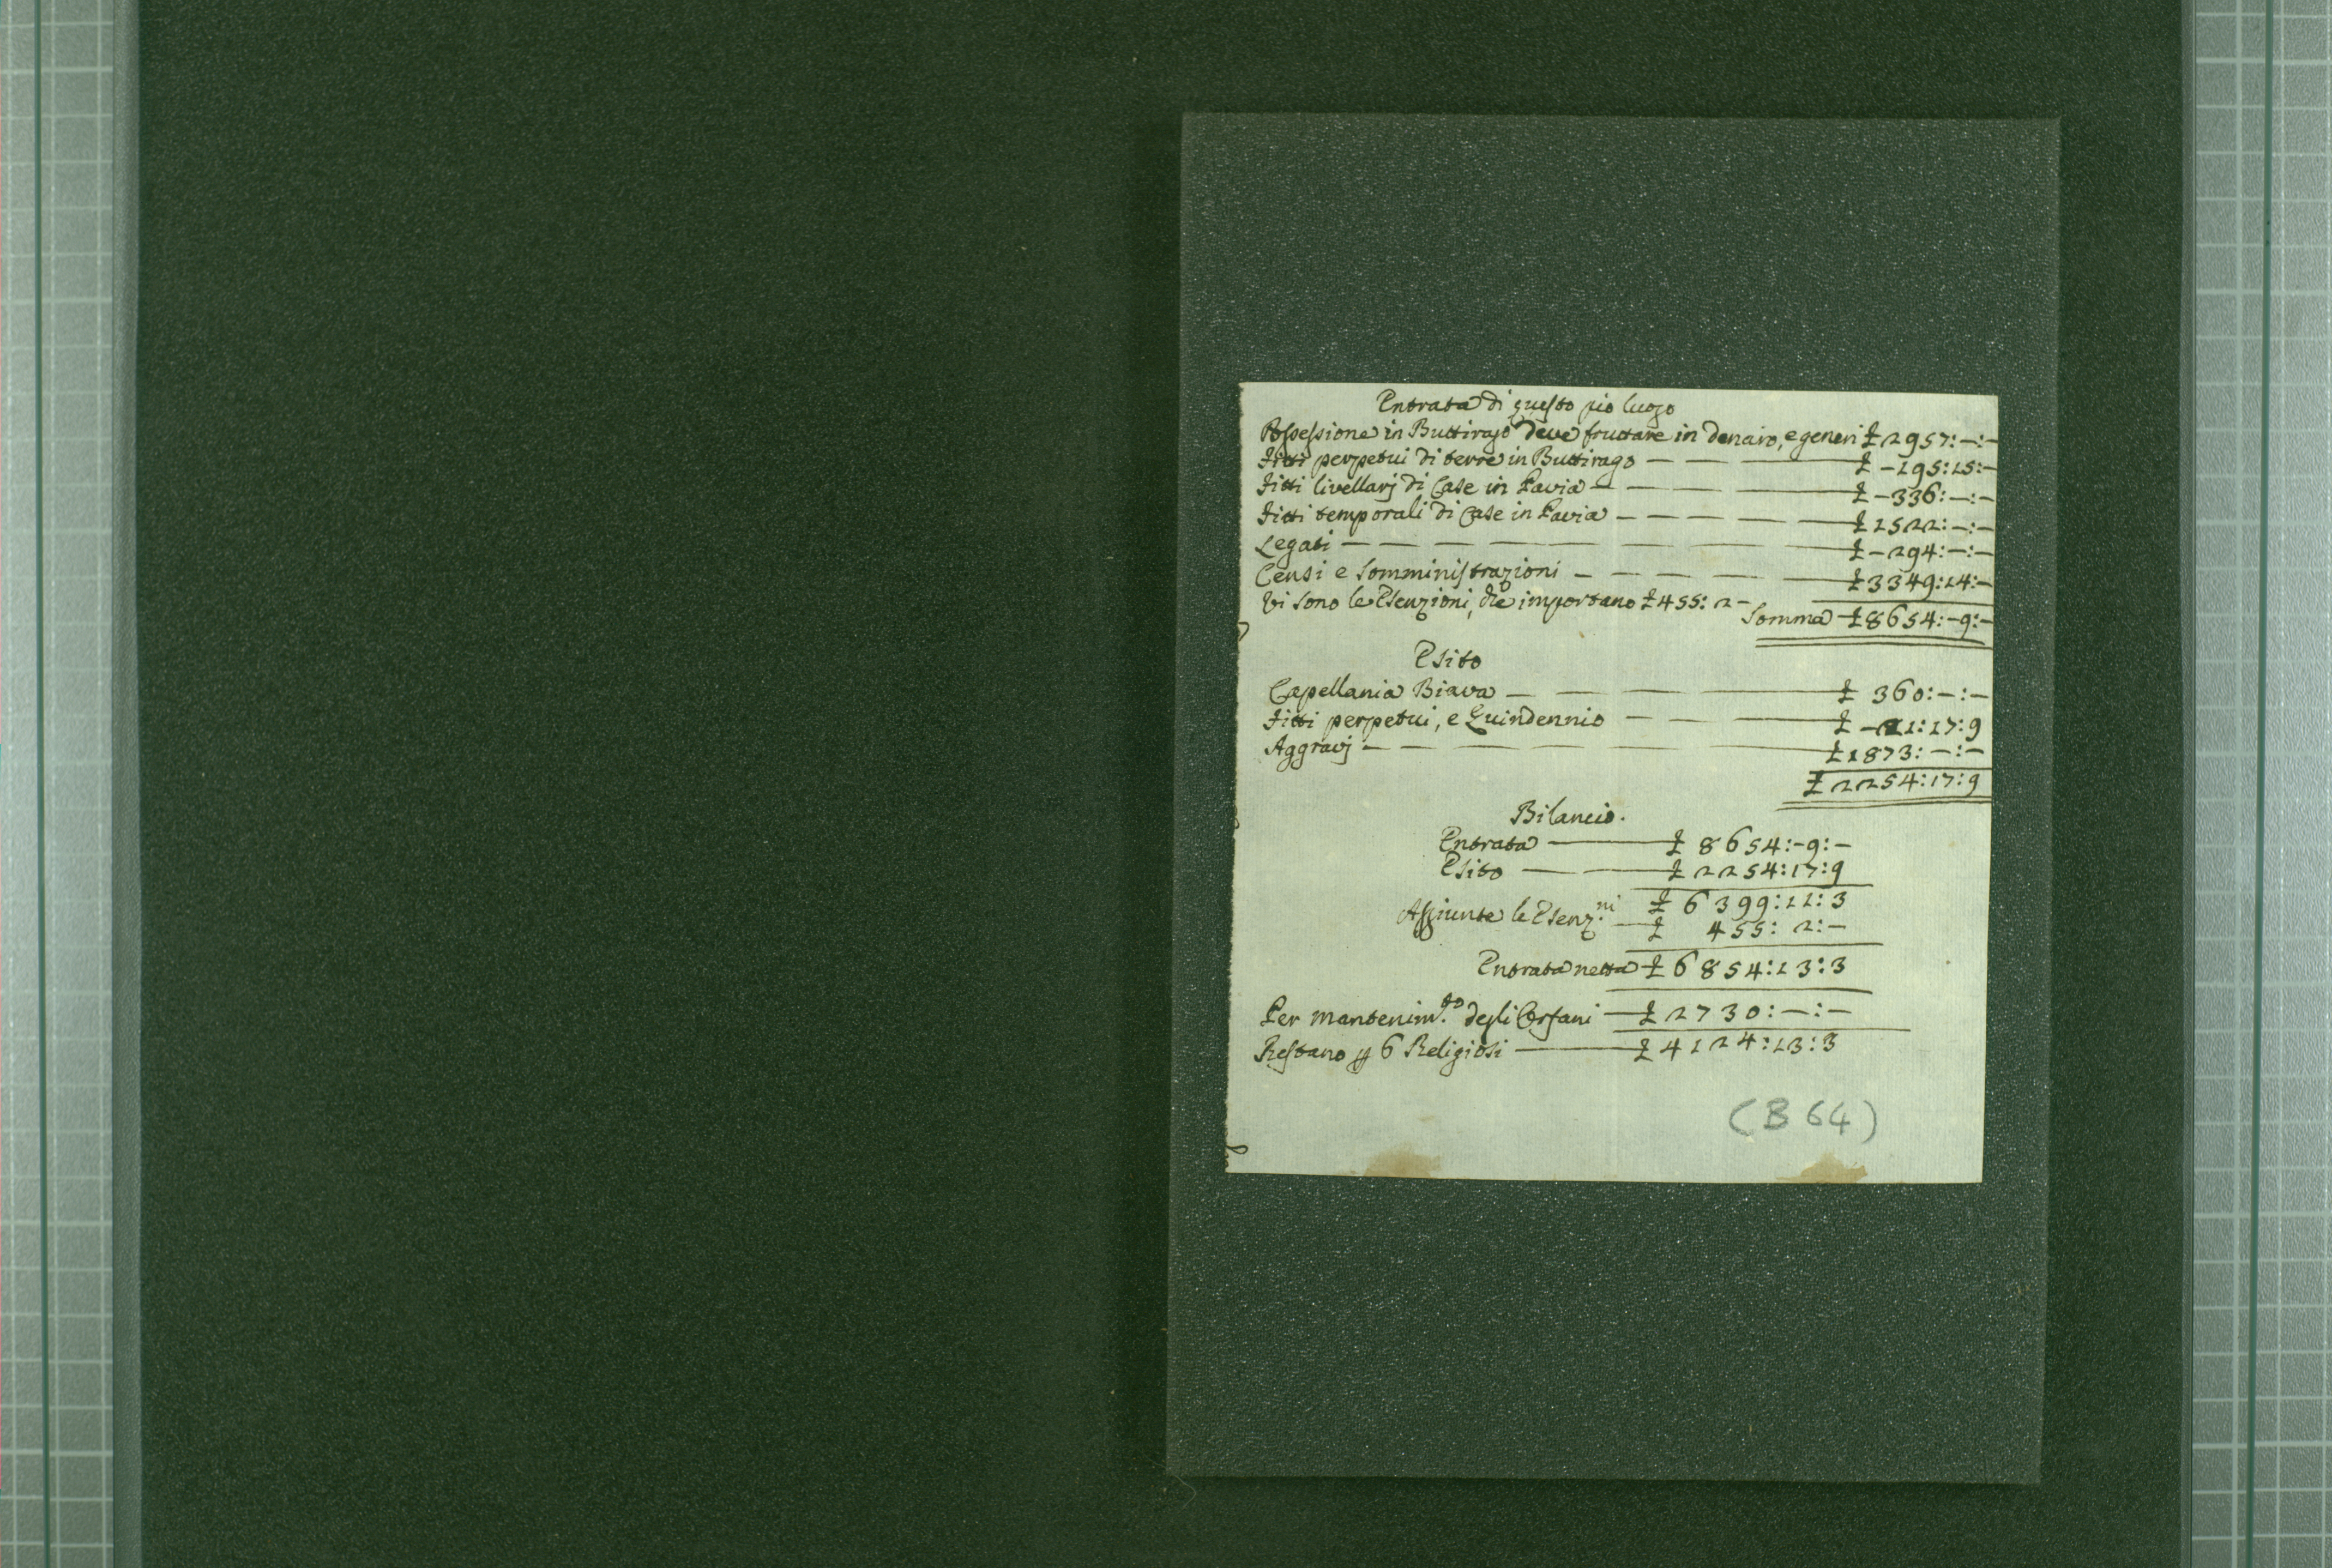 Entrata di questo pio luogo
Possessione in Buttirago deve fruttare in denaro, e generi £ 2957:—:—
Fitti perpetui di terre in Buttirago — — — £ -195:15:—
Fitti livellarj di Case in Pavia — — — £ -336:—:—
Fitti temporali di Case in Pavia — — — — £ 1522:—:—
Legati — — — — — — £ -294:—:—
Censi e Somministrazioni — — — — £ 3349:14:—
Vi sono le Esenzioni, che importano £ 455: 2 -
Somma £ 8654:-9:—
Esito
Capellania Biava — — — £ 360:—:—
Fitti perpetui, e Quindennio — — — £ -21:17:9
Aggravj — — — — — £ 1873:—:—
£ 2254:17:9
Bilancio.
Entrata — £ 8654:-9:—
Esito — — £ 2254:17:9
£ 6399:11:3
Aggiunte le Esenz.ni — £ 455: 2:—
Entrata netta £ 6854:13:3
Per mantenim.to degli Orfani — £ 2730:—:—
Restano p 6 Religiosi — £ 4124:13:3
(B 64)